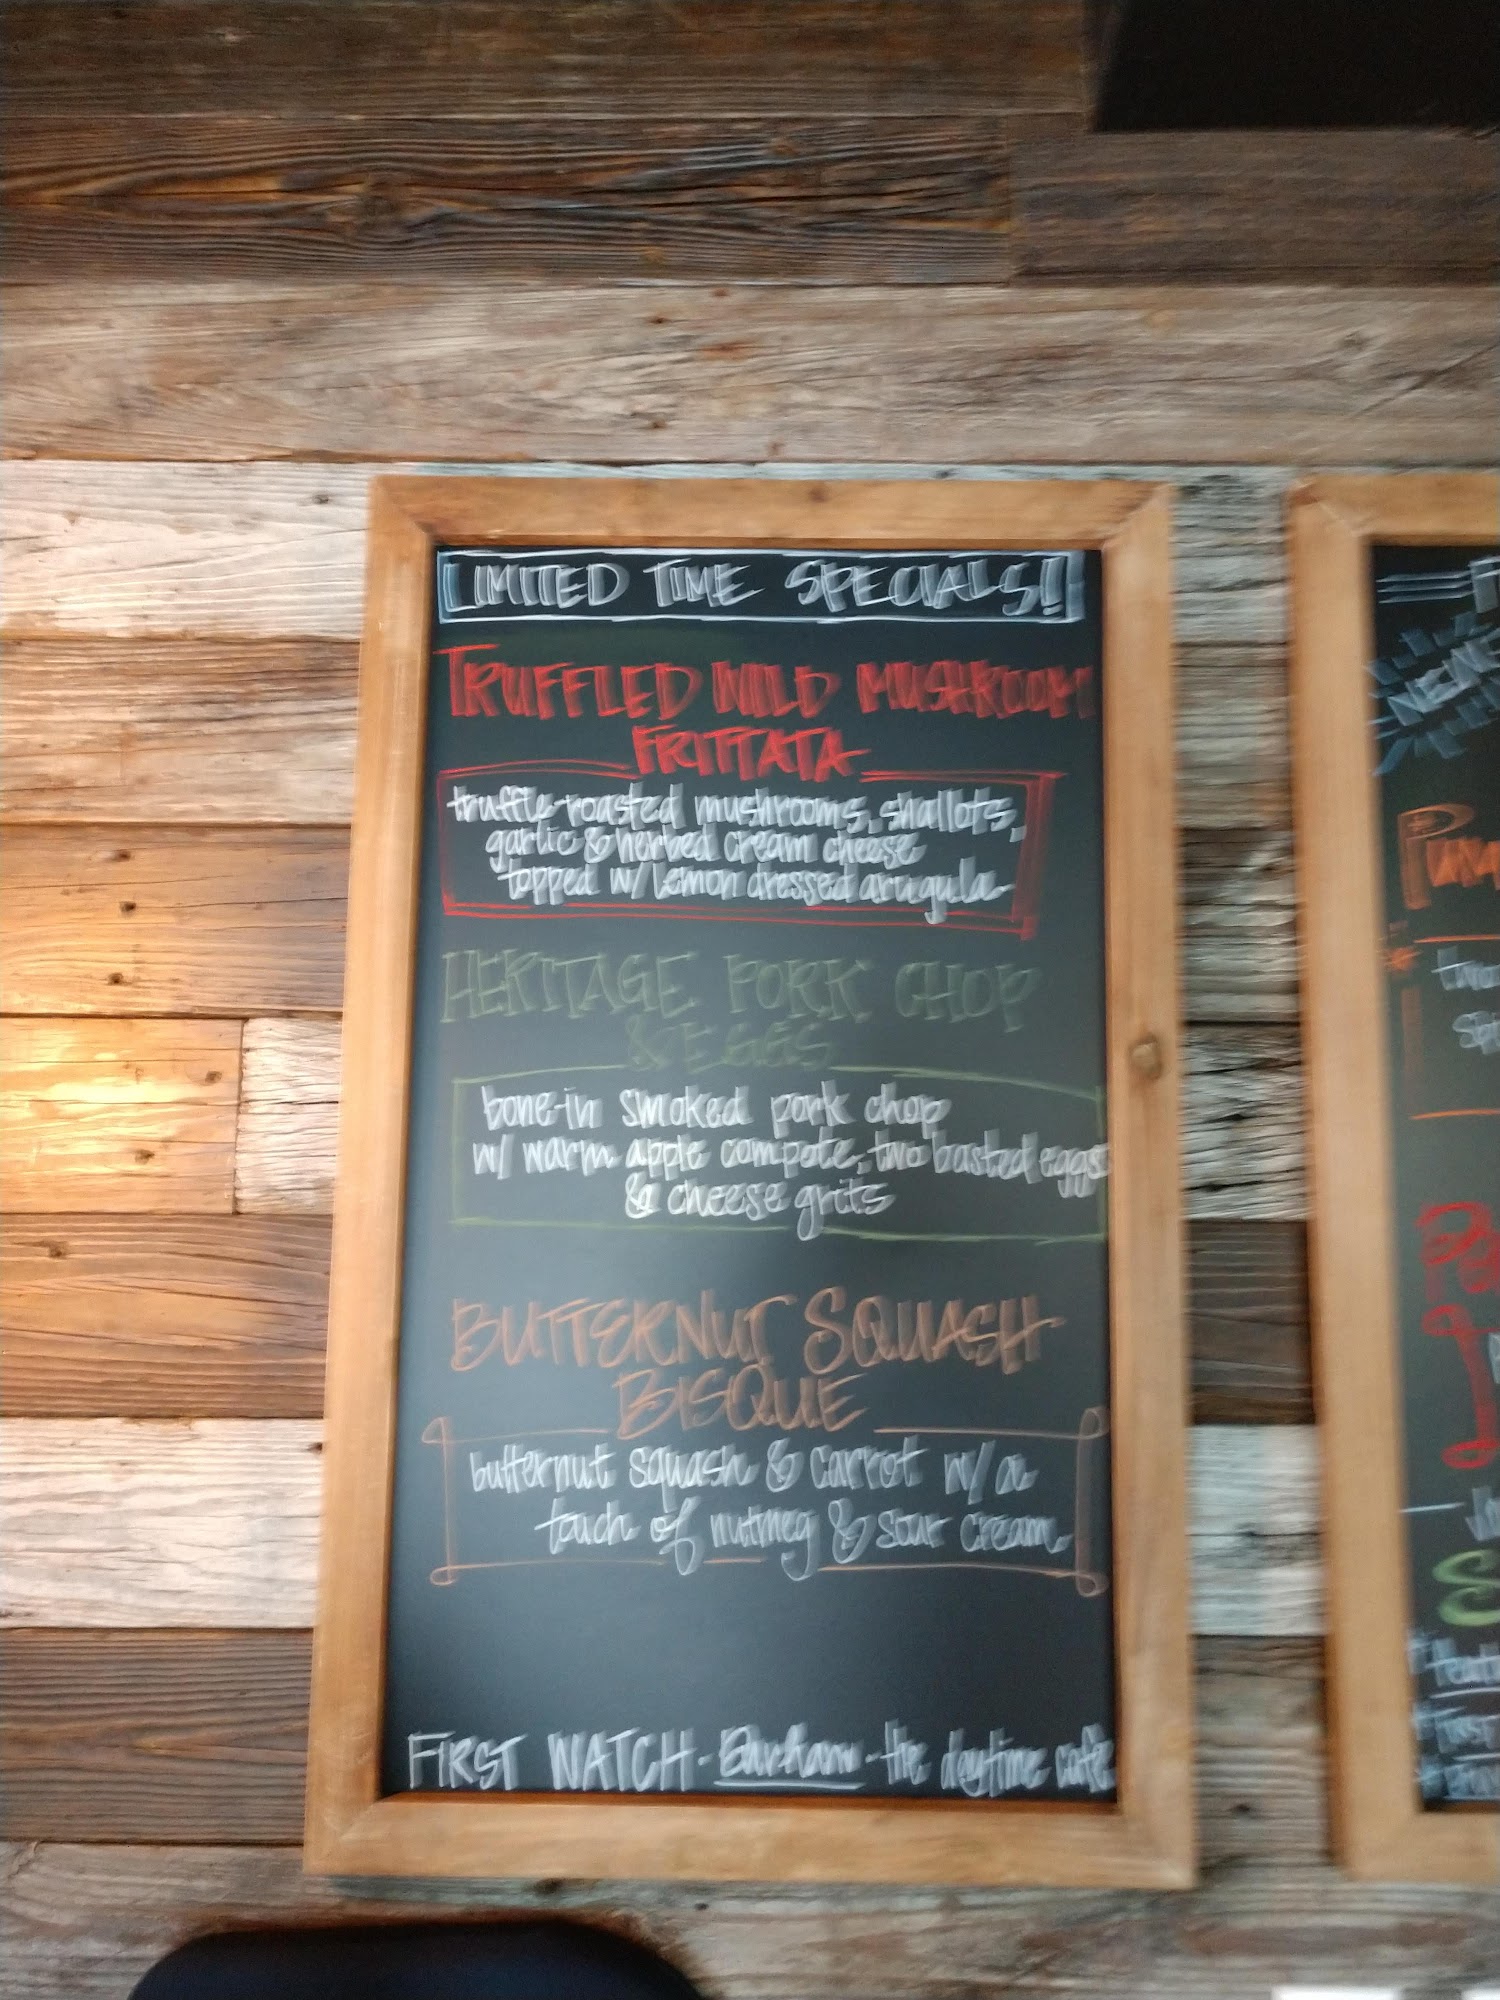 LIMITED TIME SPECIALS!!
TRUFFLED WILD MUSHROOM
FRITTATA
truffle-roasted mushrooms, shallots,
garlic & herbed cream cheese
topped w/ lemon dressed arugula
HERITAGE PORK CHOP
& EGGS
bone-in smoked pork chop
w/ warm apple compote, two basted eggs
& cheese grits
BUTTERNUT SQUASH
BISQUE
butternut squash & carrot w/ a
touch of nutmeg & sour cream
FIRST WATCH - - the daytime cafe
two